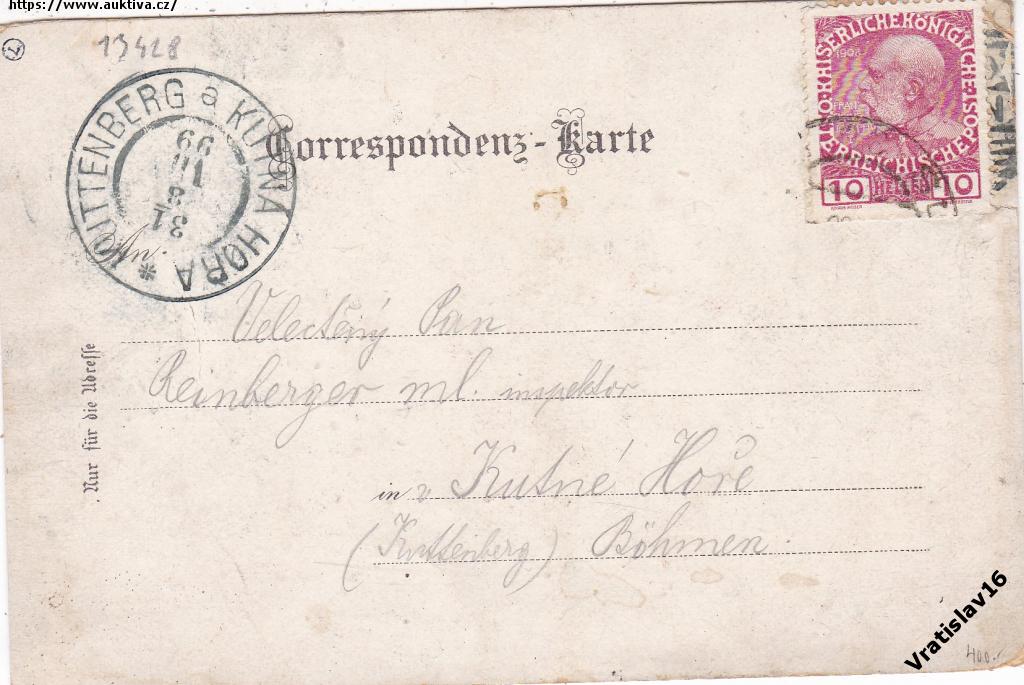 https://www.auktiva.cz/
13428
KUTTENBERG a KUTNÁ HORA *
31
8
99
Correspondenz-Karte
KAISERLICHE KÖNIGLICHE
ÖSTERREICHISCHE POST
1908
10 HELLER 10
An
Velectěný Pan
Reinberger ml. inspektor
in v Kutné Hoře
(Kuttenberg) Böhmen.
Nur für die Adresse
400.-
Vratislav16